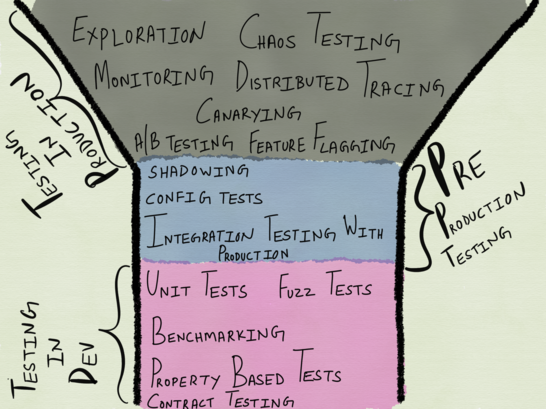 EXPLORATION CHAOS TESTING
MONITORING DISTRIBUTED TRACING
CANARYING
A/B TESTING FEATURE FLAGGING
TESTING
IN
PRODUCTION
SHADOWING
CONFIG TESTS
INTEGRATION TESTING WITH
PRODUCTION
PRE
PRODUCTION
TESTING
UNIT TESTS FUZZ TESTS
BENCHMARKING
PROPERTY BASED TESTS
CONTRACT TESTING
TESTING
IN
DEV